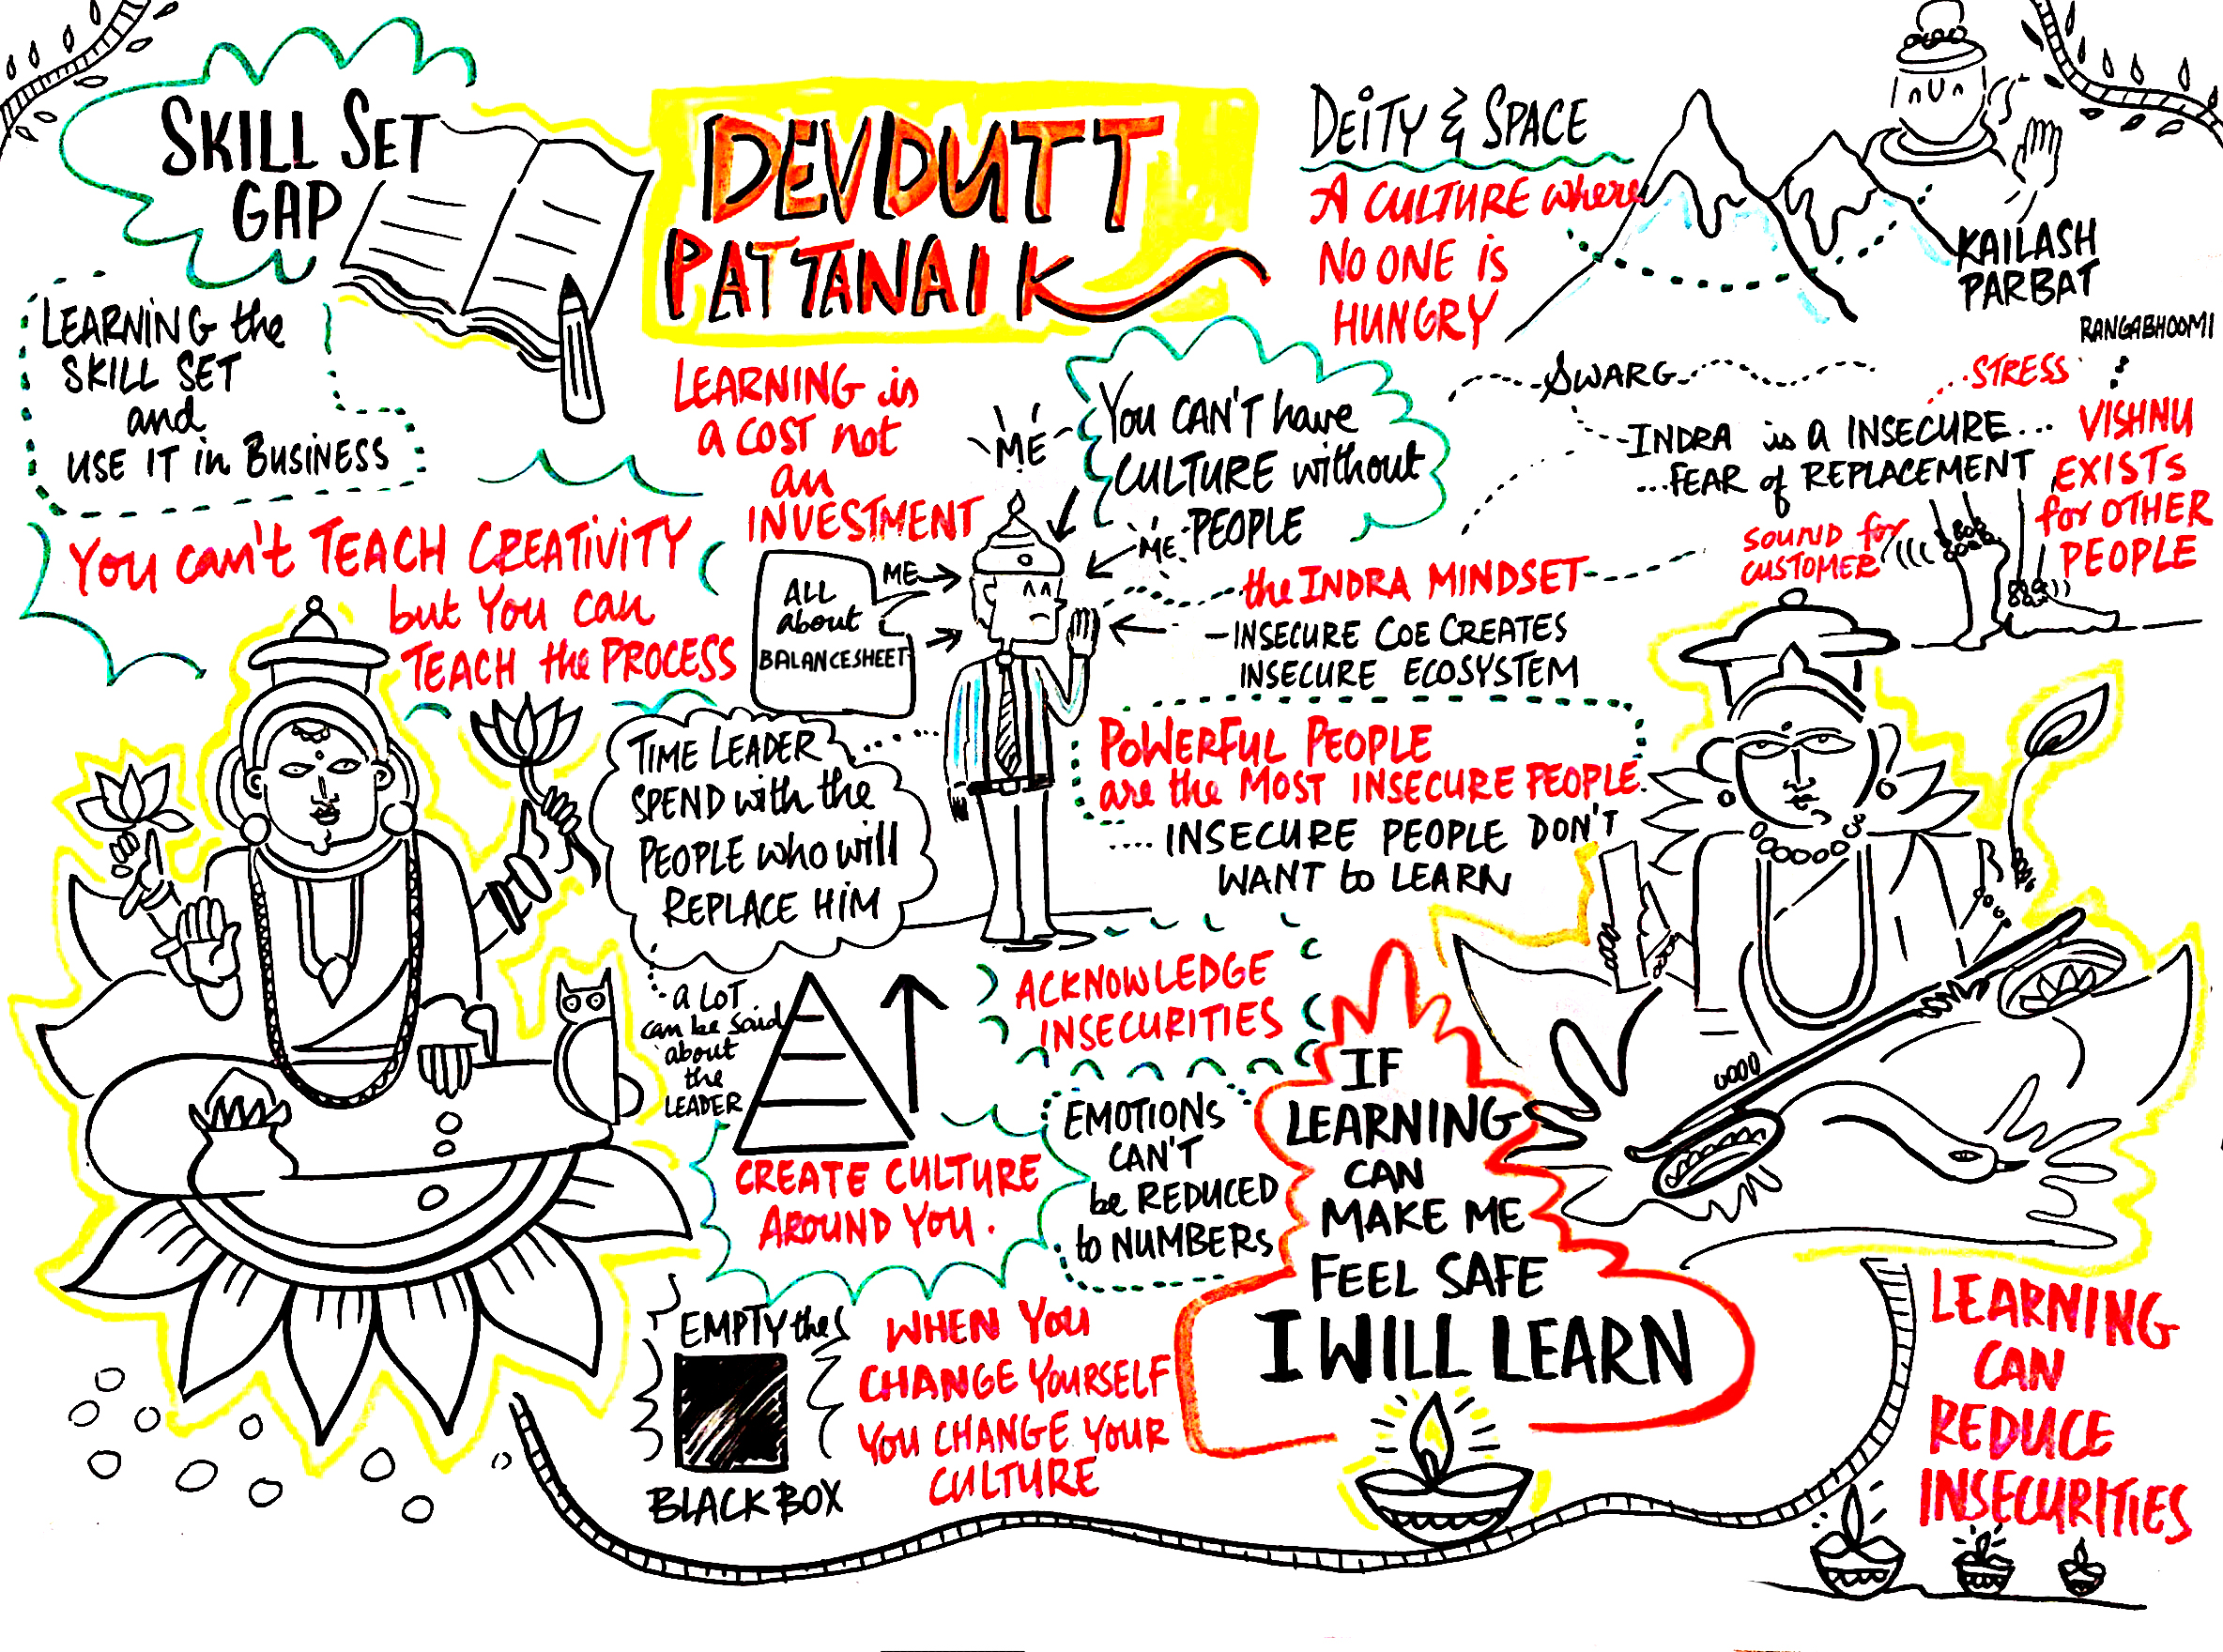 SKILL SET
GAP
LEARNING the
SKILL SET
and
USE IT in BUSINESS
YOU can't TEACH CREATIVITY
but You can
TEACH the PROCESS
DEVDUTT
PATTANAIK
LEARNING is
a COST not
an
INVESTMENT
ME
You CAN'T have
CULTURE without
PEOPLE
ME
ME
ALL
about
BALANCESHEET
DEITY & SPACE
A CULTURE where
NO ONE is
HUNGRY
KAILASH
PARBAT
RANGABHOOMI
SWARG
STRESS
INDRA is a INSECURE...
...FEAR of REPLACEMENT
VISHNU
EXISTS
for OTHER
PEOPLE
SOUND for
CUSTOMER
the INDRA MINDSET
- INSECURE COE CREATES
INSECURE ECOSYSTEM
POWERFUL PEOPLE
are the MOST INSECURE PEOPLE.
.... INSECURE PEOPLE DON'T
WANT to LEARN
TIME LEADER
SPEND with the
PEOPLE who will
REPLACE HIM
a LOT
can be said
about
the
LEADER
CREATE CULTURE
AROUND YOU.
ACKNOWLEDGE
INSECURITIES
EMOTIONS
CAN'T
be REDUCED
to NUMBERS
IF
LEARNING
CAN
MAKE ME
FEEL SAFE
I WILL LEARN
EMPTY the
BLACK BOX
WHEN YOU
CHANGE YOURSELF
YOU CHANGE YOUR
CULTURE
LEARNING
CAN
REDUCE
INSECURITIES